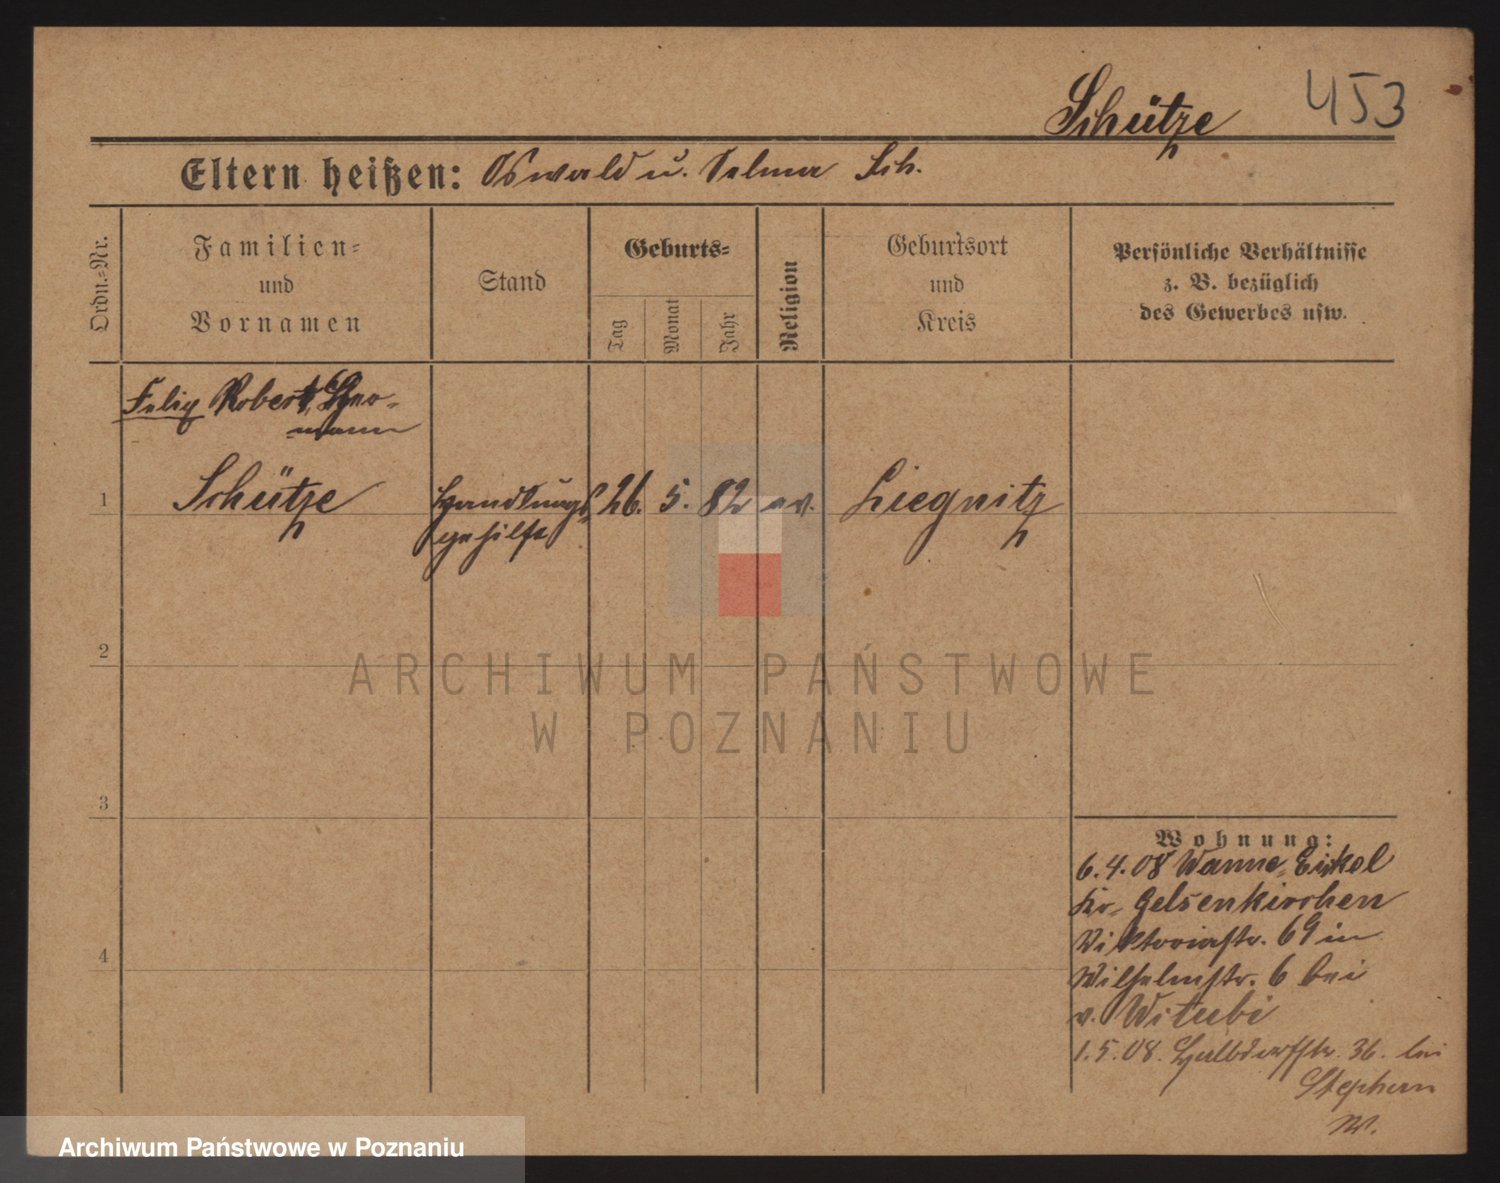 Schütze 453
Eltern heißen: Oswald u. Selma Sch.
Ordn.-Nr.
Familien-
und
Vornamen
Stand
Geburts-
Tag
Monat
Jahr
Religion
Geburtsort
und
Kreis
Persönliche Verhältnisse
z. B. bezüglich
des Gewerbes usw.
Felix Robert Her-
mann
1 Schütze Handlungs- 26. 5. 82 ev. Liegnitz
gehilfe
2
ARCHIWUM PAŃSTWOWE
W POZNANIU
3
Wohnung:
6.4.08 Wanne-Eickel
Kr. Gelsenkirchen
Viktoriastr. 69 in
4
Wilhelmstr. 6 bei
v.
1.5.08. Halbdorfstr. 36. bei
Stephan
Archiwum Państwowe w Poznaniu